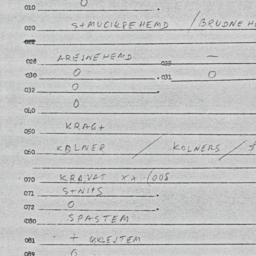 010 0
020 S+MUCIKPEHEMD /BRUDNEH
022
028 AREJNEHEMD 029 —
030 0 . 031 0
032 0
040 0
050 KRAG+
060 KOLNER / KOLNERS /
070 KRAVAT XX /OOS
071 S+NIPS
072 0
080 SPASTEM
081 + UKLEJTEM
089 0